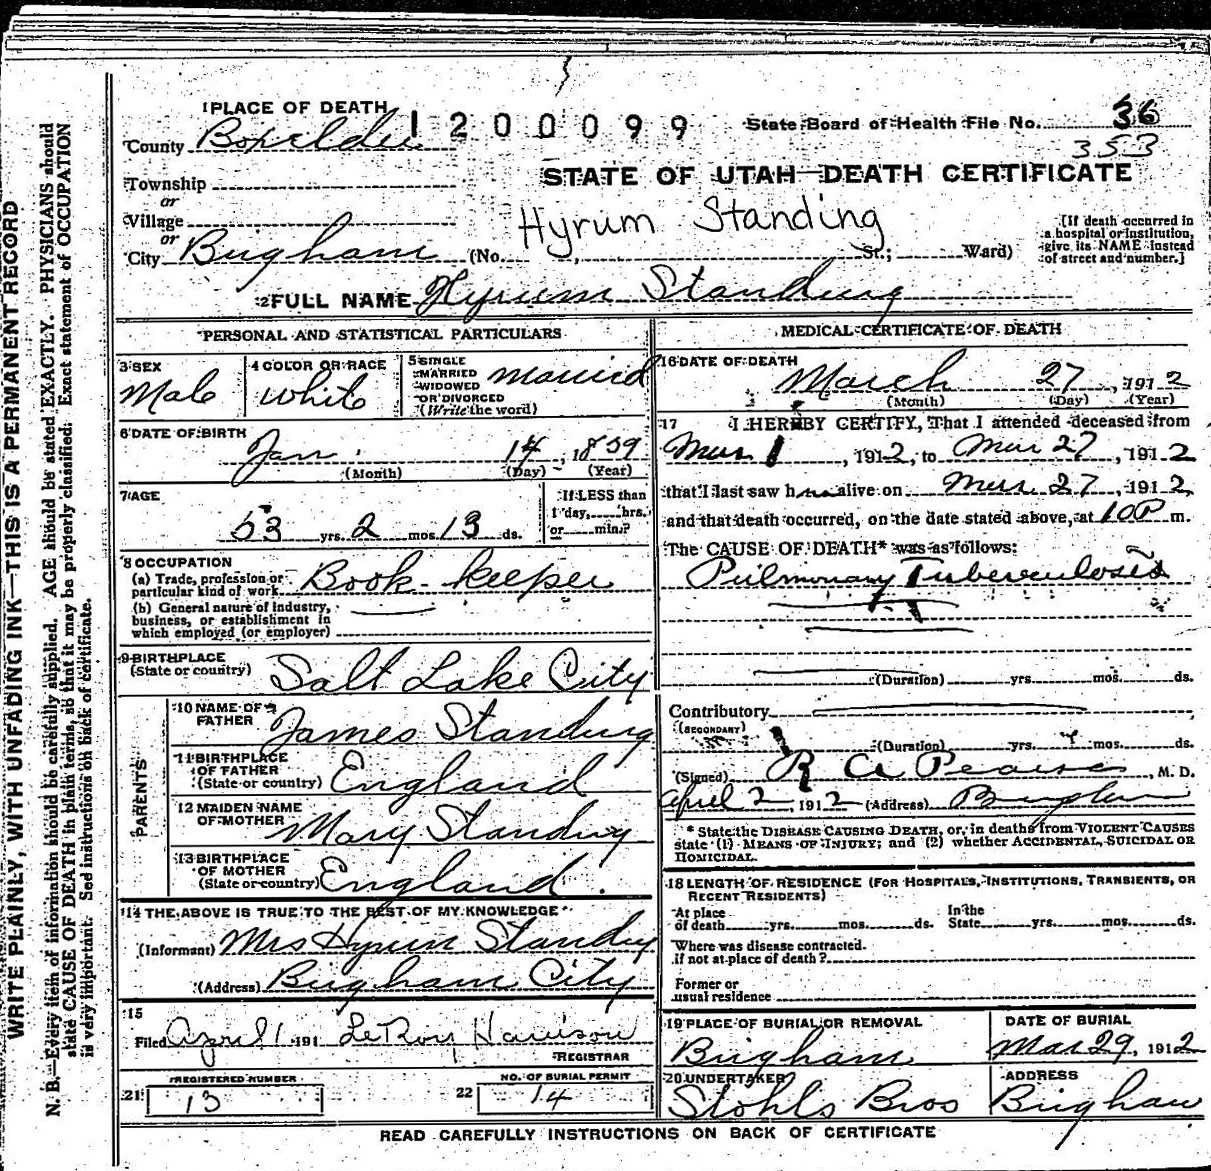 1 PLACE OF DEATH
1200099
State Board of Health File No. 36
353
County Boxelder
STATE OF UTAH—DEATH CERTIFICATE
Township
or
Village
or
City Brigham (No. , St.; Ward)
Hyrum Standing
[If death occurred in
a hospital or institution,
give its NAME instead
of street and number.]
2 FULL NAME Hyrum Standing
PERSONAL AND STATISTICAL PARTICULARS
3 SEX
Male
4 COLOR OR RACE
White
5 SINGLE
MARRIED
WIDOWED
OR DIVORCED
(Write the word)
Married
6 DATE OF BIRTH
Jan. 14, 1859
(Month) (Day) (Year)
7 AGE
53 yrs. 2 mos. 13 ds.
If LESS than
1 day, hrs.
or min.?
8 OCCUPATION
(a) Trade, profession or
particular kind of work Book-keeper
(b) General nature of industry,
business, or establishment in
which employed (or employer)
9 BIRTHPLACE
(State or country) Salt Lake City
PARENTS
10 NAME OF
FATHER James Standing
11 BIRTHPLACE
OF FATHER
(State or country) England
12 MAIDEN NAME
OF MOTHER Mary Standing
13 BIRTHPLACE
OF MOTHER
(State or country) England.
14 THE ABOVE IS TRUE TO THE BEST OF MY KNOWLEDGE
(Informant) Mrs Hyrum Standing
(Address) Brigham City
15
Filed April 1 191 LeRoy Harrison
REGISTRAR
REGISTERED NUMBER
21 13
NO. OF BURIAL PERMIT
22 14
MEDICAL CERTIFICATE OF DEATH
16 DATE OF DEATH
March 27, 1912
(Month) (Day) (Year)
17 I HEREBY CERTIFY, That I attended deceased from
Mar 1, 1912, to Mar 27, 1912
that I last saw him alive on Mar 27, 1912
and that death occurred, on the date stated above, at 10 P m.
The CAUSE OF DEATH* was as follows:
Pulmonary Tuberculosis
(Duration) yrs. mos. ds.
Contributory
(SECONDARY)
(Duration) yrs. mos. ds.
(Signed) R A Pearse, M. D.
April 2, 1912 (Address) Brigham
* State the DISEASE CAUSING DEATH, or, in deaths from VIOLENT CAUSES
state (1) MEANS OF INJURY; and (2) whether ACCIDENTAL, SUICIDAL OR
HOMICIDAL.
18 LENGTH OF RESIDENCE (FOR HOSPITALS, INSTITUTIONS, TRANSIENTS, OR
RECENT RESIDENTS)
At place
of death yrs. mos. ds.
In the
State yrs. mos. ds.
Where was disease contracted.
if not at place of death?
Former or
usual residence
19 PLACE OF BURIAL OR REMOVAL
Brigham
DATE OF BURIAL
Mar 29, 1912
20 UNDERTAKER
Stohls Bros
ADDRESS
Brigham
READ CAREFULLY INSTRUCTIONS ON BACK OF CERTIFICATE
WRITE PLAINLY, WITH UNFADING INK—THIS IS A PERMANENT RECORD
N. B.—Every item of information should be carefully supplied. AGE should be stated EXACTLY. PHYSICIANS should
state CAUSE OF DEATH in plain terms, so that it may be properly classified. Exact statement of OCCUPATION
is very important. See instructions on back of certificate.